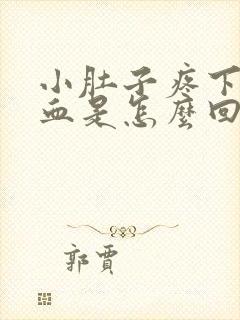 小肚子疼下
血是怎麼回
郭賈